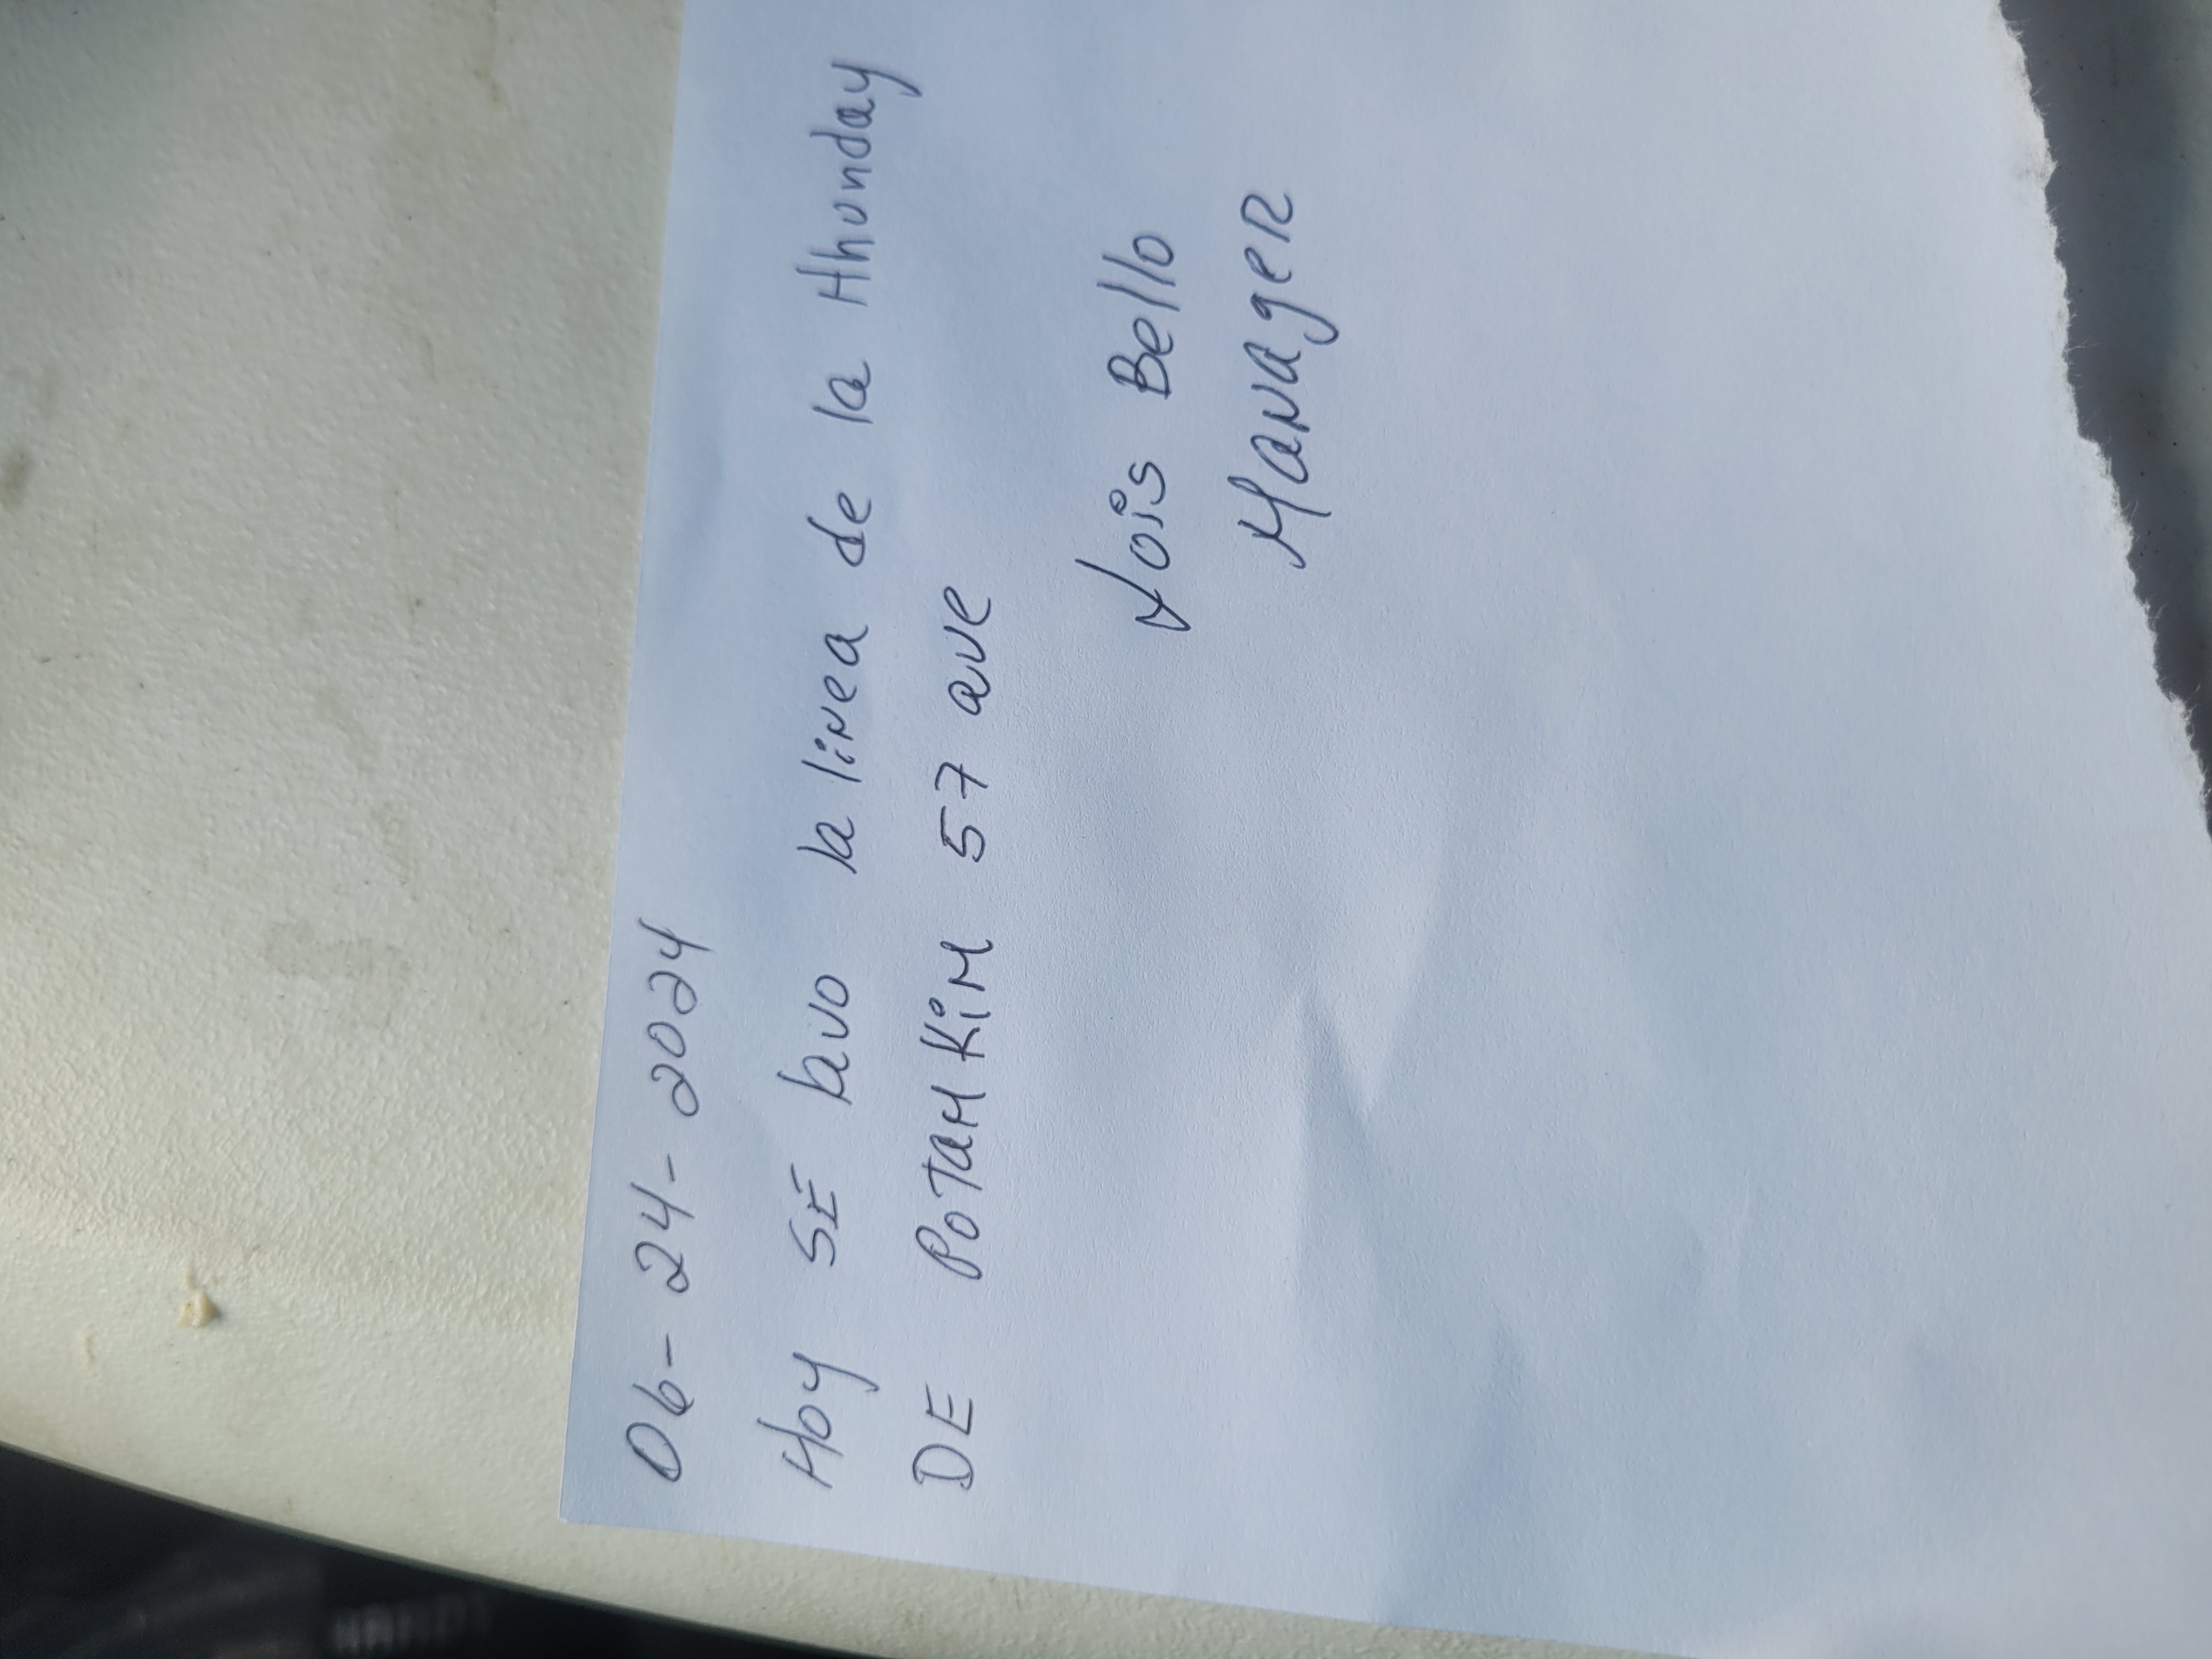 06-24-2024
Hoy SE lavo la linea de la Hhunday
DE POTAMKiM 57 ave
Lois Bello
Manager